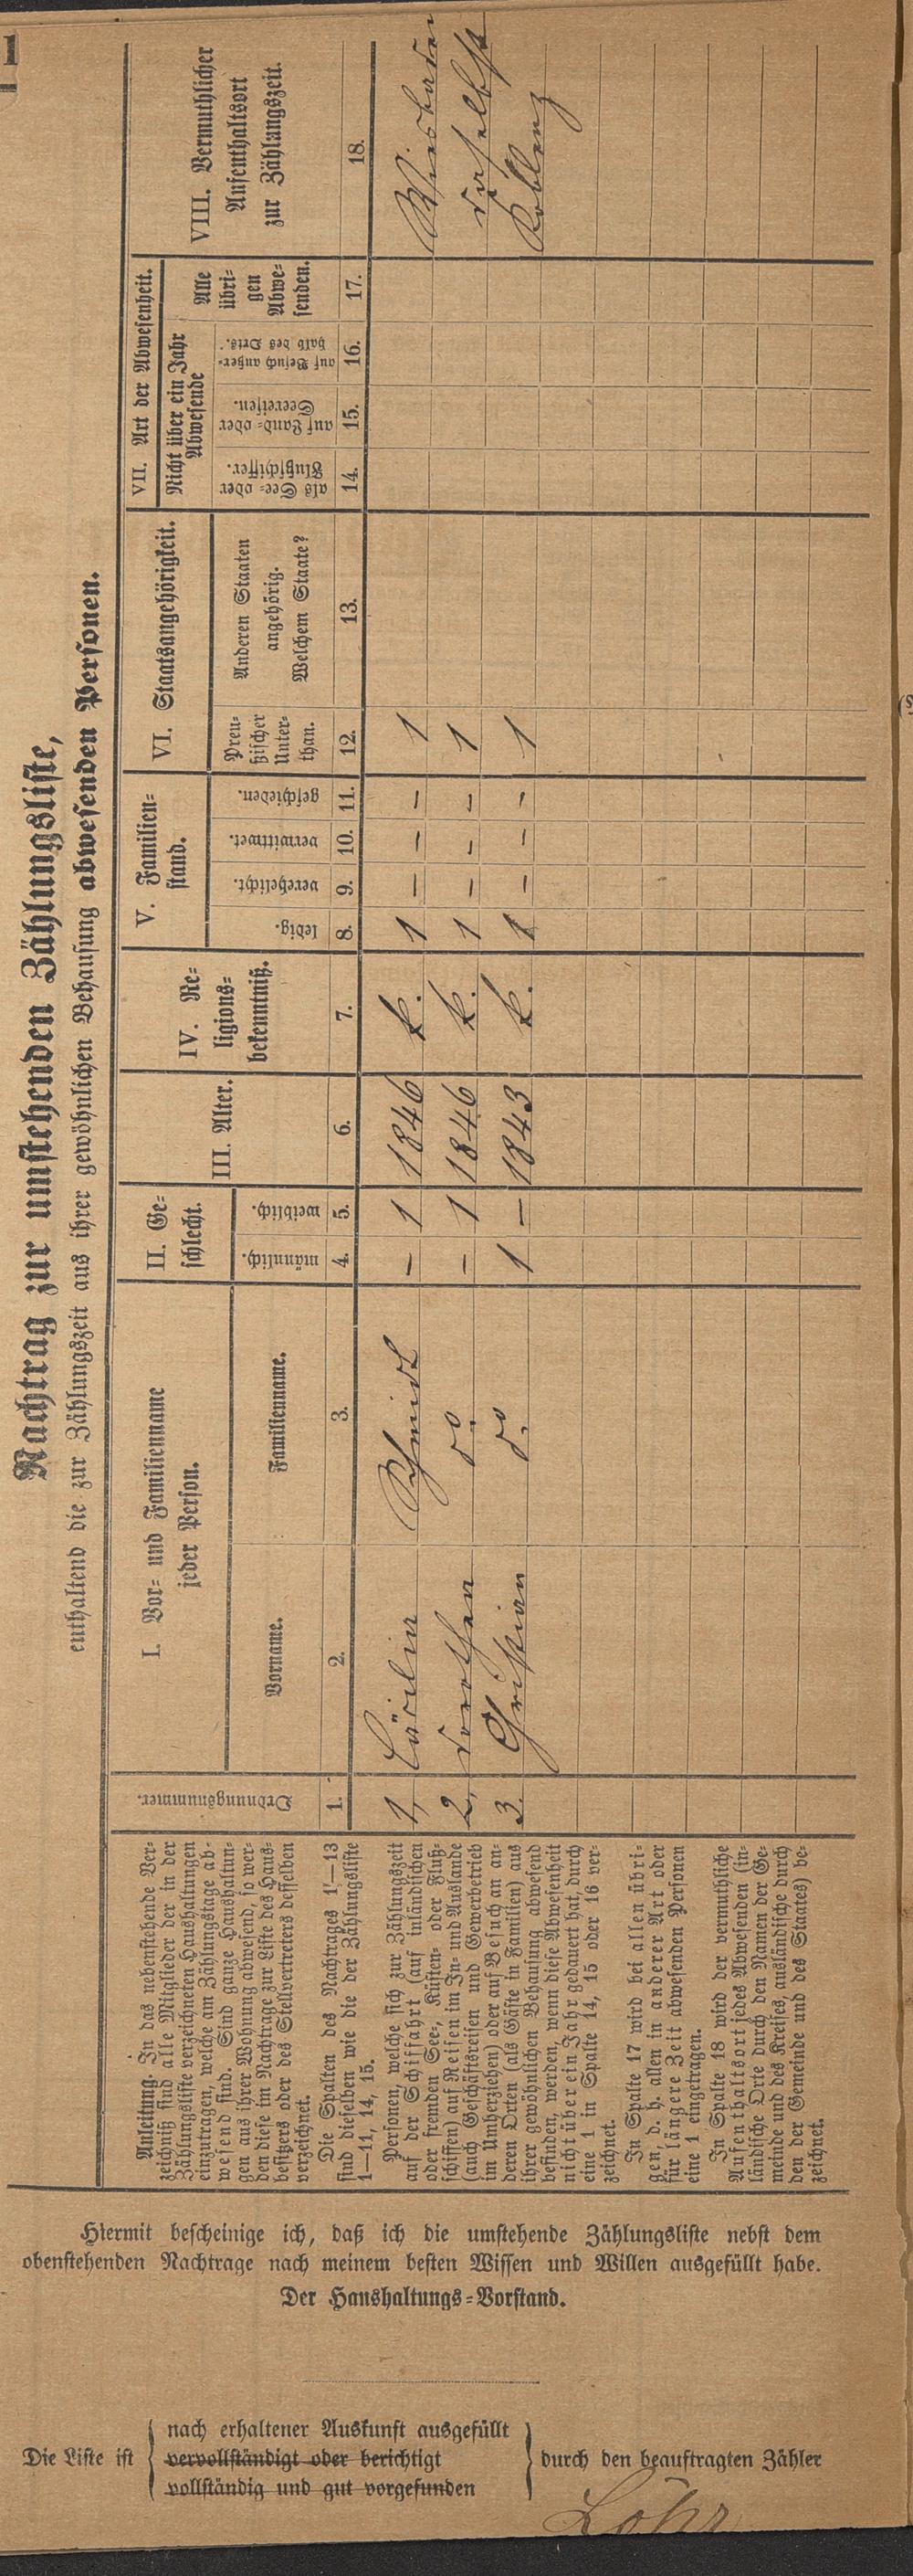 1
Nachtrag zur umstehenden Zählungsliste,
enthaltend die zur Zählungszeit aus ihrer gewöhnlichen Behausung abwesenden Personen.
Anleitung. In das nebenstehende Ver-
zeichniß sind alle Mitglieder der in der
Zählungsliste verzeichneten Haushaltungen
einzutragen, welche am Zählungstage ab-
wesend sind. Sind ganze Haushaltun-
gen aus ihrer Wohnung abwesend, so wer-
den diese im Nachtrage zur Liste des Haus-
besitzers oder des Stellvertreters desselben
verzeichnet.
Die Spalten des Nachtrages 1—13
sind dieselben wie die der Zählungsliste
1—11, 14, 15.
Personen, welche sich zur Zählungszeit
auf der Schiffahrt (auf inländischen
oder fremden See-, Küsten- oder Fluß-
schiffen) auf Reisen im In- und Auslande
(auch Geschäftsreisen und Gewerbetrieb
im Umherziehen) oder auf Besuch an an-
deren Orten (als Gäste in Familien) aus
ihrer gewöhnlichen Behausung abwesend
befinden, werden, wenn diese Abwesenheit
nicht über ein Jahr gedauert hat, durch
eine 1 in Spalte 14, 15 oder 16 ver-
zeichnet.
In Spalte 17 wird bei allen übri-
gen, d. h. allen in anderer Art oder
für längere Zeit abwesenden Personen
eine 1 eingetragen.
In Spalte 18 wird der vermuthliche
Aufenthaltsort jedes Abwesenden (in-
ländische Orte durch den Namen der Ge-
meinde und des Kreises, ausländische durch
den der Gemeinde und des Staates) be-
zeichnet.
Ordnungsnummer.
I. Vor- und Familienname
jeder Person.
Vorname.
Familienname.
II. Ge-
schlecht.
männlich.
weiblich.
III. Alter.
IV. Re-
ligions-
bekenntniß.
V. Familien-
stand.
ledig.
verehelicht.
verwittwet.
geschieden.
VI. Staatsangehörigkeit.
Preu-
ßischer
Unter-
than.
Anderen Staaten
angehörig.
Welchem Staate?
VII. Art der Abwesenheit.
Nicht über ein Jahr
Abwesende
als See- oder
Flußschiffer.
auf Land- oder
Seereisen.
auf Besuch außer-
halb des Orts.
Alle
übri-
gen
Abwe-
senden.
VIII. Vermuthlicher
Aufenthaltsort
zur Zählungszeit.
1. 2. 3. 4. 5. 6. 7. 8. 9. 10. 11. 12. 13. 14. 15. 16. 17. 18.
1. Cäcilia Schmidt – 1 1846 k. 1 – – – 1 Wiesbaden
2. Dorothea do. – 1 1846 k. 1 – – – 1 daselbst
3. Christian do. 1 – 1843 k. 1 – – – 1 Koblenz
Hiermit bescheinige ich, daß ich die umstehende Zählungsliste nebst dem
obenstehenden Nachtrage nach meinem besten Wissen und Willen ausgefüllt habe.
Der Haushaltungs-Vorstand.
nach erhaltener Auskunft ausgefüllt
Die Liste ist vervollständigt oder berichtigt durch den beauftragten Zähler
vollständig und gut vorgefunden
Löhr